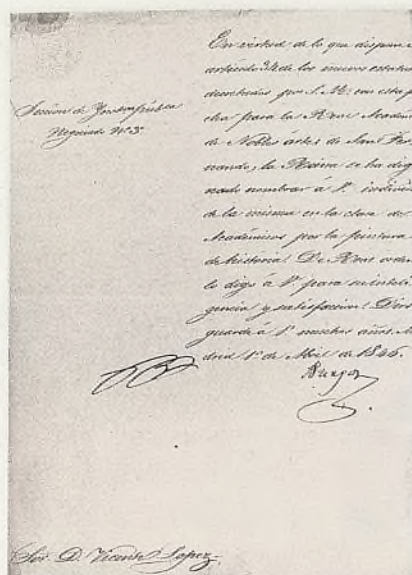 Sección de Instrn. pública
Negociado Nº. 3º.
En virtud de lo que dispone el
artículo 34 de los nuevos estatutos
decretados por S. M. con esta fe
cha para la Real Academia
de Nobles artes de San Fer
nando, la Reina se ha dig
nado nombrar á V. individuo
de la misma en la clase de
Académicos por la pintura
de historia. De Real orden
lo digo á V. para su inteli
gencia y satisfaccion. Dios
guarde á V. muchos años. Ma
drid 1º. de Abril de 1846.
Sor. D. Vicente Lopez.